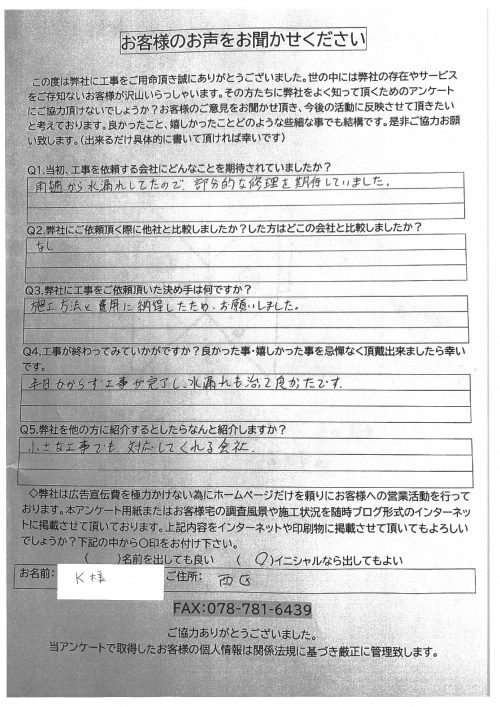 お客様のお声をお聞かせください
この度は弊社に工事をご用命頂き誠にありがとうございました。世の中には弊社の存在やサービス
をご存知ないお客様が沢山いらっしゃいます。その方たちに弊社をよく知って頂くためのアンケート
にご協力頂けないでしょうか?お客様のご意見をお聞かせ頂き、今後の活動に反映させて頂きたい
と考えております。良かったこと、嬉しかったことどのような些細な事でも結構です。是非ご協力お願
い致します。(出来るだけ具体的に書いて頂ければ幸いです)
Q1.当初、工事を依頼する会社にどんなことを期待されていましたか?
雨樋から水漏れしてたので、部分的な修理を期待していました。
Q2.弊社にご依頼頂く際に他社と比較しましたか?した方はどこの会社と比較しましたか?
なし
Q3.弊社に工事をご依頼頂いた決め手は何ですか?
施工方法と費用に納得したため、お願いしました。
Q4.工事が終わってみていかがですか?良かった事・嬉しかった事を忌憚なく頂戴出来ましたら幸い
です。
半日かからず工事が完了し、水漏れも治って良かたです。
Q5.弊社を他の方に紹介するとしたらなんと紹介しますか?
小さな工事でも対応してくれる会社.
◇弊社は広告宣伝費を極力かけない為にホームページだけを頼りにお客様への営業活動を行って
おります。本アンケート用紙またはお客様宅の調査風景や施工状況を随時ブログ形式のインターネッ
トに掲載させて頂いております。上記内容をインターネットや印刷物に掲載させて頂いてもよろしい
でしょうか?下記の中から〇印をお付け下さい。
( )名前を出しても良い (〇)イニシャルなら出してもよい
お名前: K様 ご住所: 西区
FAX:078-781-6439
ご協力ありがとうございました。
当アンケートで取得したお客様の個人情報は関係法規に基づき厳正に管理致します。